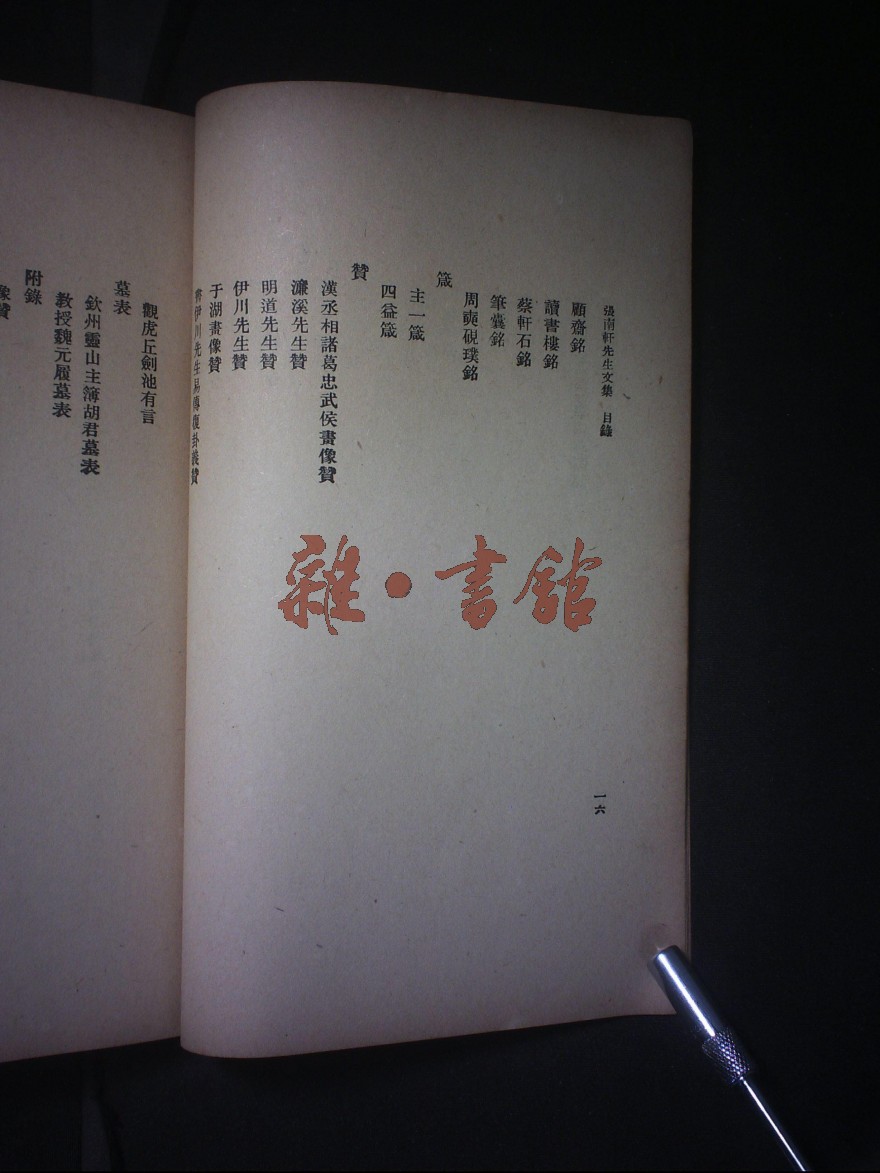 張南軒先生文集 目錄
顧齋銘
讀書樓銘
蔡軒石銘
筆囊銘
周奭硯璞銘
箴
主一箴
四益箴
贊
漢丞相諸葛忠武侯畫像贊
濂溪先生贊
明道先生贊
伊川先生贊
于湖畫像贊
書伊川先生易傳復卦義贊
一六
觀虎丘劍池有言
墓表
欽州靈山主簿胡君墓表
教授魏元履墓表
附錄
像贊
雜·書館